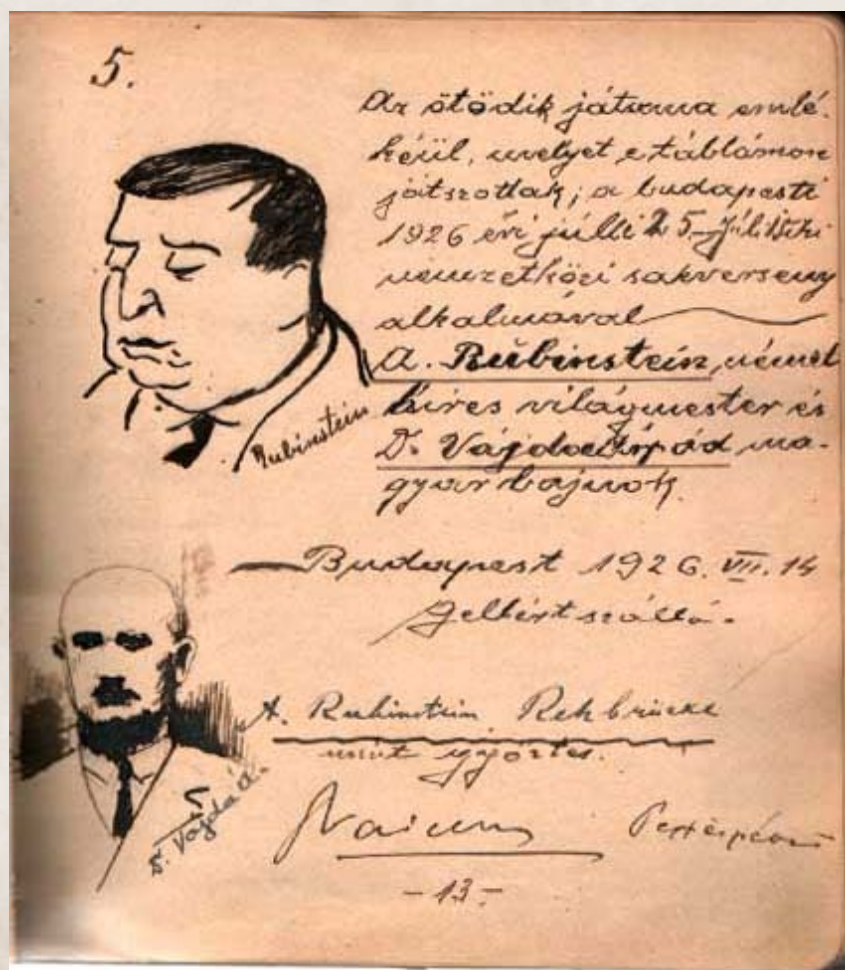 5.
Az ötödik játszma emlé-
kéül, melyet e táblámon
játszottak; a budapesti
1926 évi júlli 25-
nemzetközi sakverseny
alkalmával
A. Rubinstein, német
híres világmester és
Dr. Vajda Árpád ma-
gyar bajnok.
Rubinstein
Budapest 1926. VII. 14
Gellért szálló.
A. Rubinstein Rehbrücke
mint győztes.
Dr. Vajda Á.
-13-